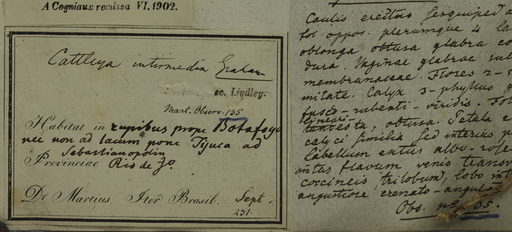 A Cogniaux remissa VI. 1902.
Cattleya intermedia Graham
sc. Lindley.
Mart. Observ. 135
Habitat in rupibus prope Botafogo
nec non ad lacum pone Tijuca ad
Sebastianopolin
Provinciae Rio de Jo.
Dr Martius Iter Brasil. Sept.
231.
Caulis erectus sesquiped
fol oppos. plerumque 4
oblonga obtusa glabra
dura. Vaginae glebrae
membranaceae. Flores 2-5
mitate. Calyx 3-phyllus
fusco-rubenti-viridis. Fol
lineari-
obtusa. Petala
calyci similia sed interius
Labellum extus albo-
intus flavum venis
coccineis trilobum, lobo
angustiore crenato-
Obs. 135.